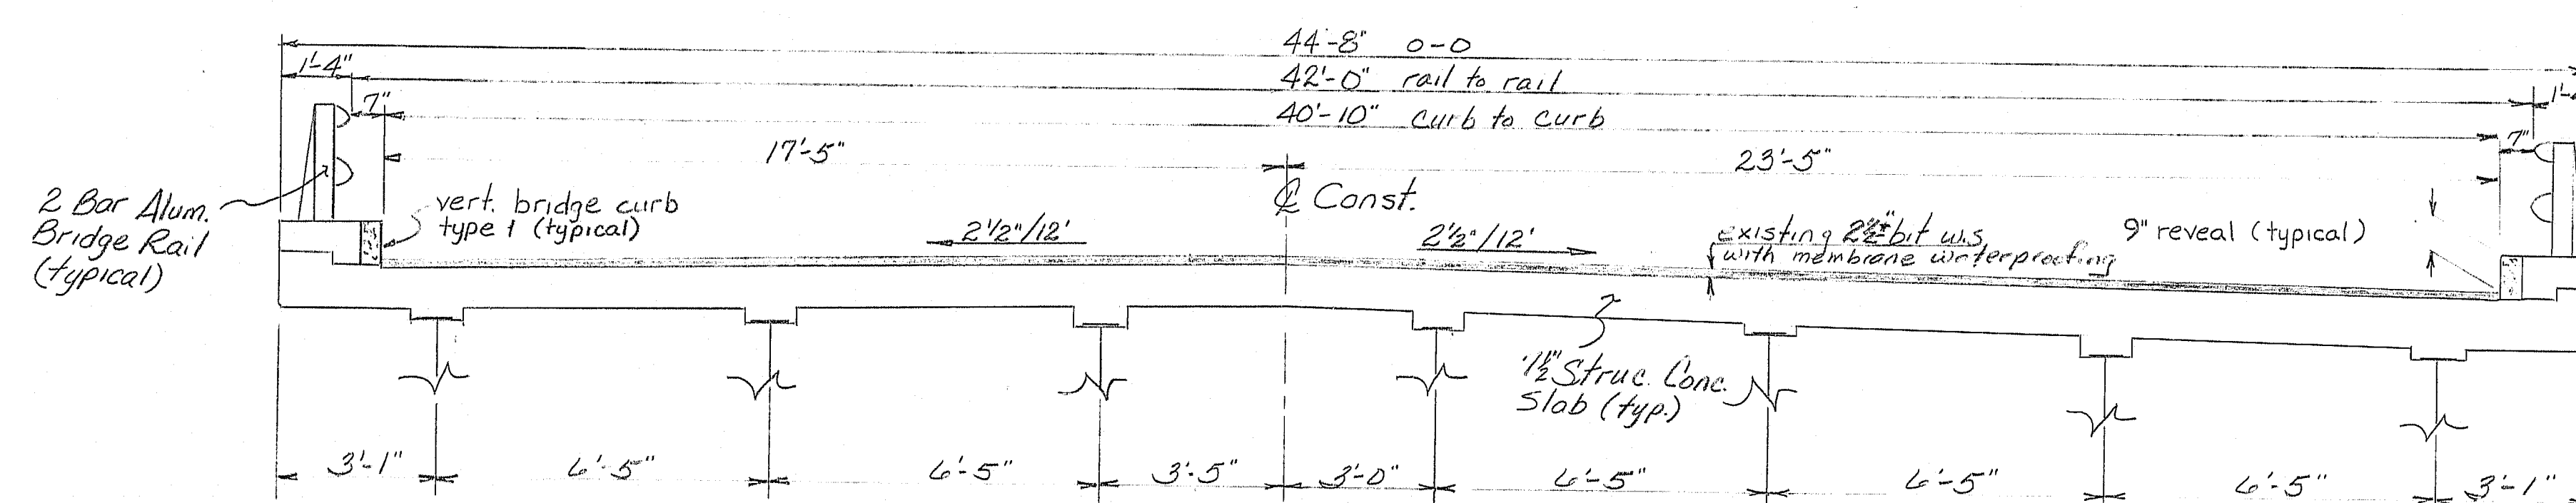 44'-8" o-o
1'-4"
42'-0" rail to rail
7"
40'-10" curb to curb
7"
17'-5"
23'-5"
2 Bar Alum.
Bridge Rail
(typical)
vert. bridge curb
type 1 (typical)
℄ Const.
2 1/2"/12'
2 1/2"/12'
existing 2½"± bit w.s.
with membrane waterproofing
9" reveal (typical)
Struc. Conc.
Slab (typ.)
3'-1"
6'-5"
6'-5"
3'-5"
3'-0"
6'-5"
6'-5"
6'-5"
3'-1"